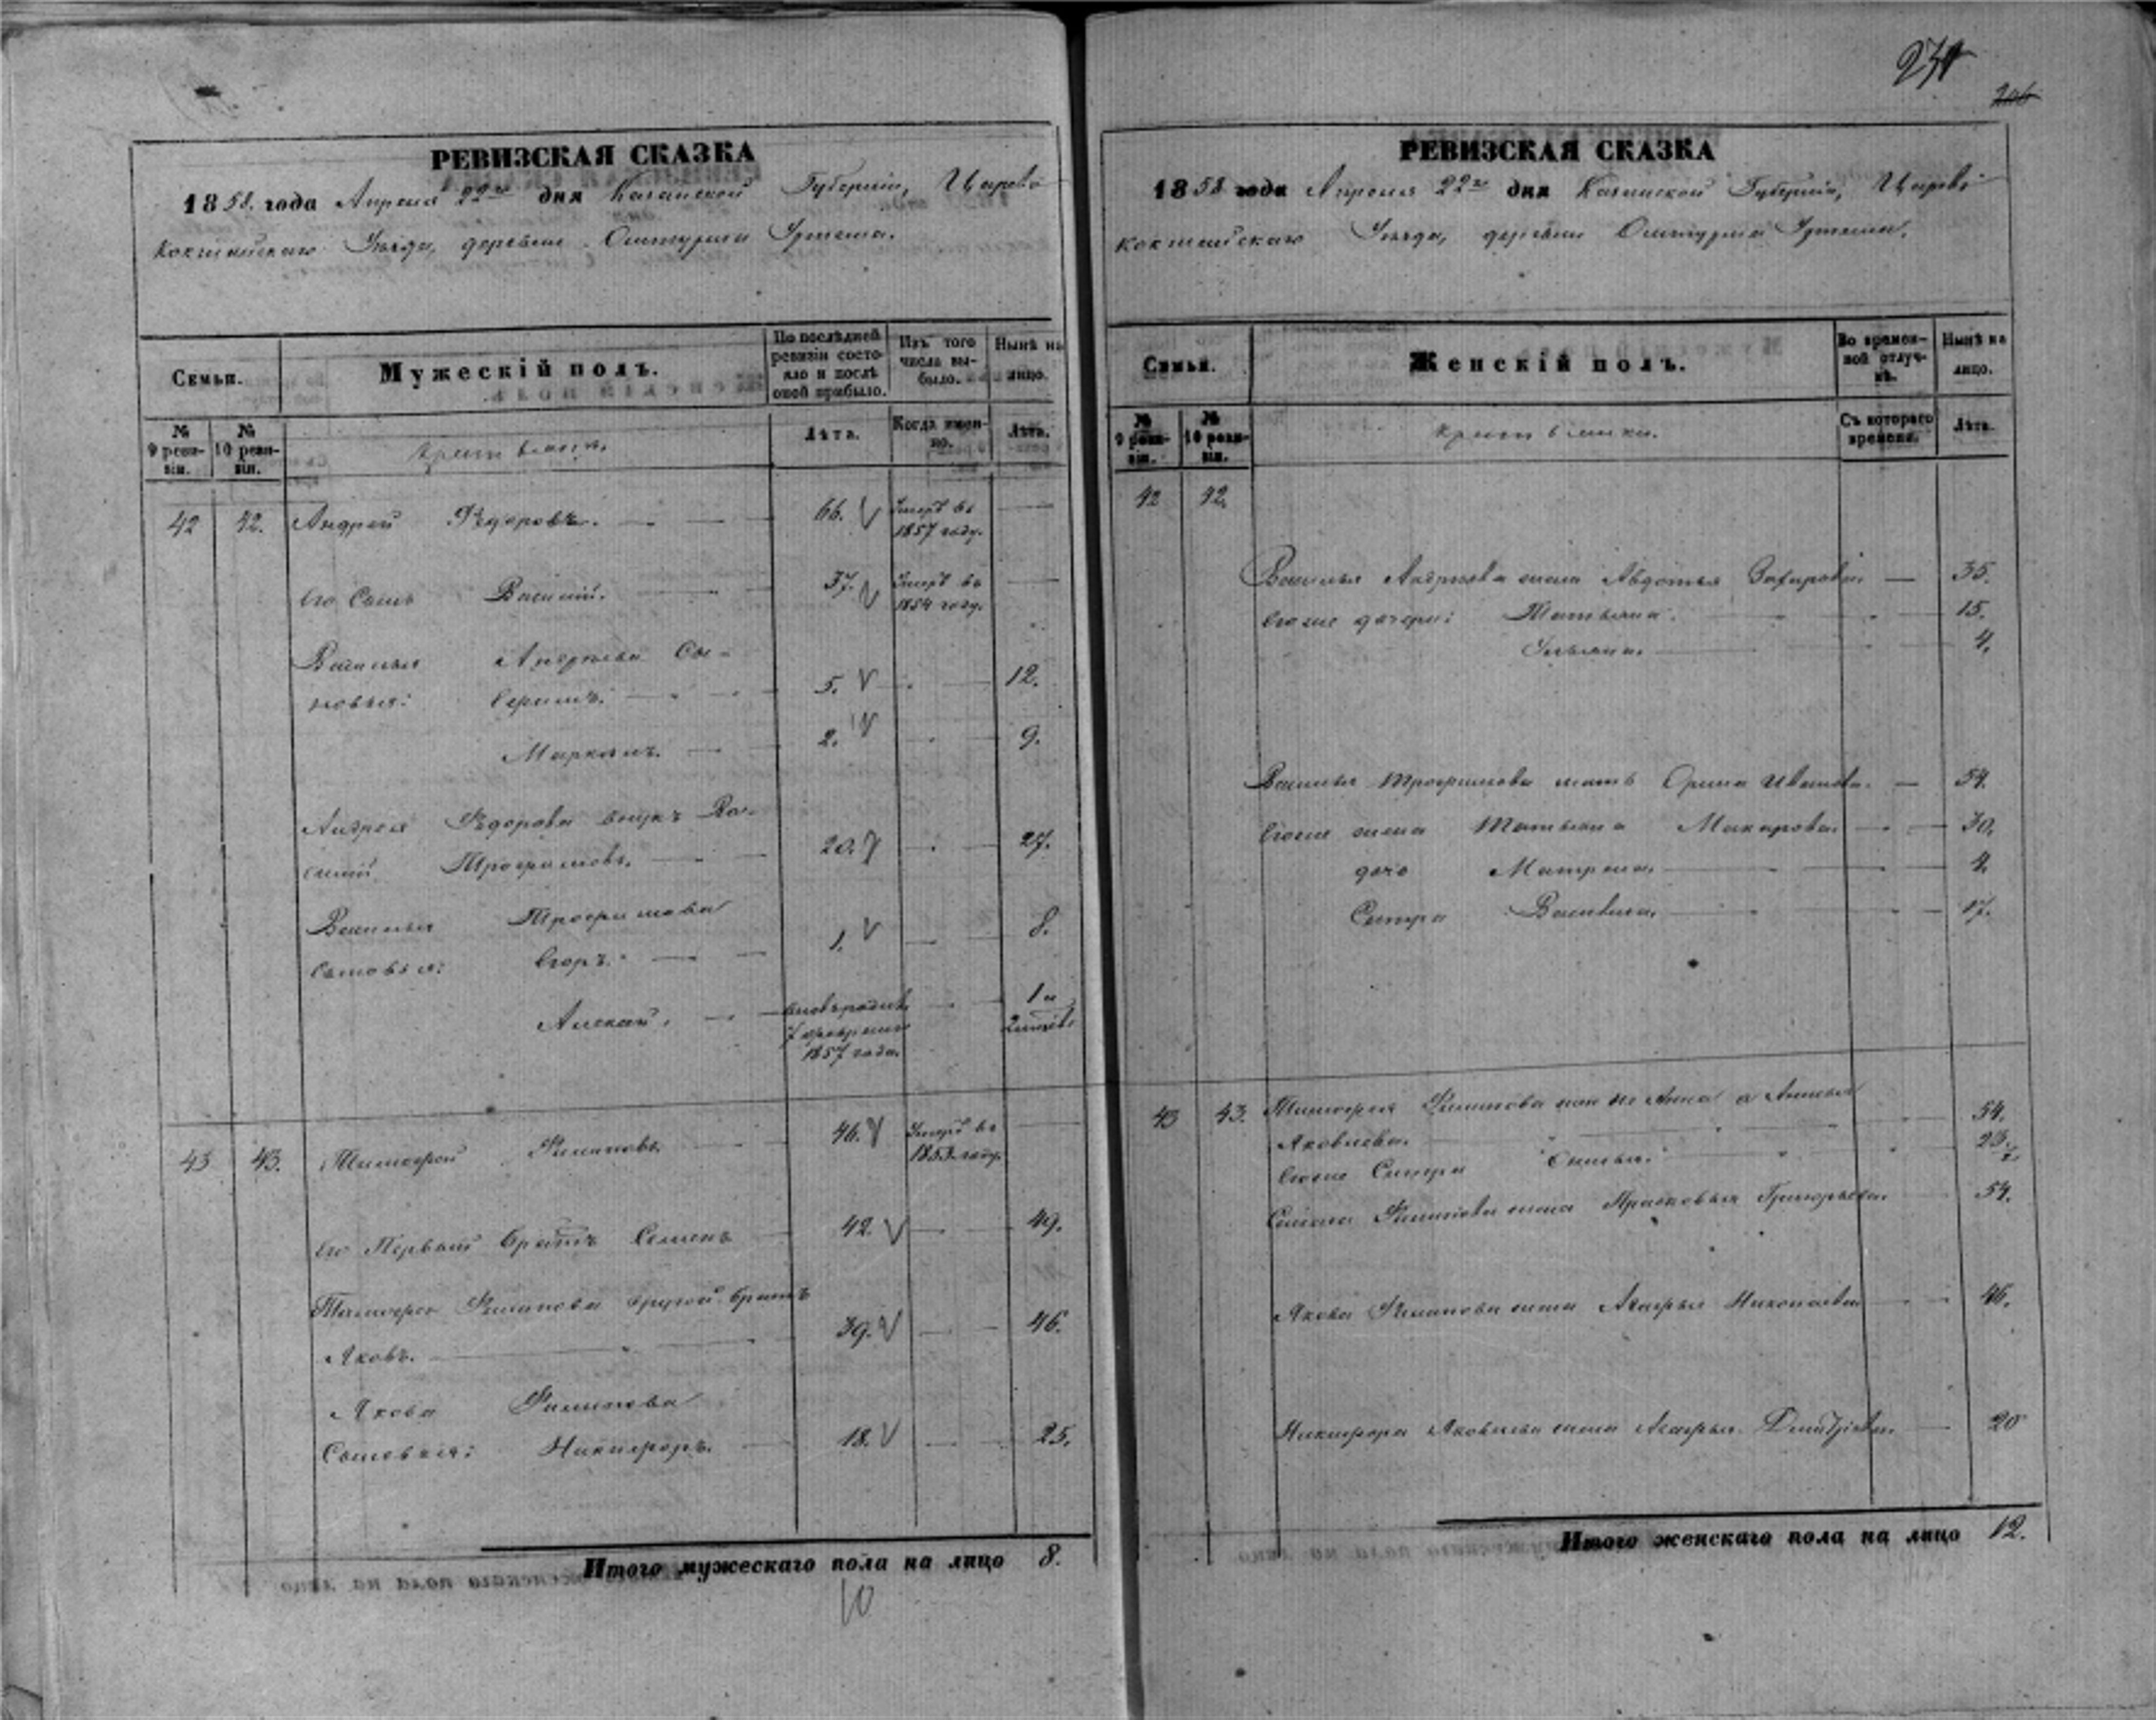 РЕВИЗСКАЯ СКАЗКА
1858. года Апреля 22го дня Казанской Губерніи, Царево
кокшайскаго Уѣзда, деревни
Семьи.
Мужескій полъ.
По послѣдней ревизіи состояло и послѣ оной прибыло.
Изъ того числа выбыло.
Нынѣ на лицо.
№ 9 ревизіи.
№ 10 ревизіи.
Лѣта.
Когда именно.
Лѣта.
42 42. Андрей Ѳедоровъ. 66. Умеръ въ
1857 году.
Его Сынъ Василий. 37. Умеръ въ
1854 году.
Василья Андреева Сы-
новья: 5. 12.
2. 9.
Андрея Ѳедорова внукъ Ва-
силий Трофимовъ. 20. 27.
Василья Трофимова
Сыновья: Егоръ. 1. 8.
Алексѣй. вновьрожден.
7 февраля
1857 года. 1 и
2 мѣсяц.
43 43. Тимофей Филиповъ 46. Умеръ въ
году.
Его Первый братъ Семенъ 42. 49.
Тимофея Филипова другой братъ
Яковъ. 39. 46.
Якова Филипова
Сыновья: Никифоръ. 18. 25.
Итого мужескаго пола на лицо 8.
10
231
206
РЕВИЗСКАЯ СКАЗКА
1858 года Апреля 22го дня Казанской Губерніи, Царево
кокшайскаго Уѣзда, деревни
Семьи.
Женскій полъ.
Во временной отлучкѣ.
Нынѣ на лицо.
№ 9 ревизіи.
№ 10 ревизіи.
Съ котораго времени.
Лѣта.
42 42.
Василья Андреева жена Авдотья Захарова 35.
Егоже дочери: Татьяна. 15.
Ульяна. 4.
Василья Трофимова мать Орина Иванова. 54.
Егоже жена Татьяна Макарова 30.
дочь Матрена. 4.
Сестра Василиса. 17.
43 43. Тимофея Филипова жена не Анна а Анисья
Яковлева. 54.
Егоже Сестра 23.
Семена Филипова жена Прасковья Григорьева 54.
Якова Филипова жена Агафья Николаева 46.
Никифора Яковлева жена Агафья Дмитріева 20
Итого женскаго пола на лицо 12.